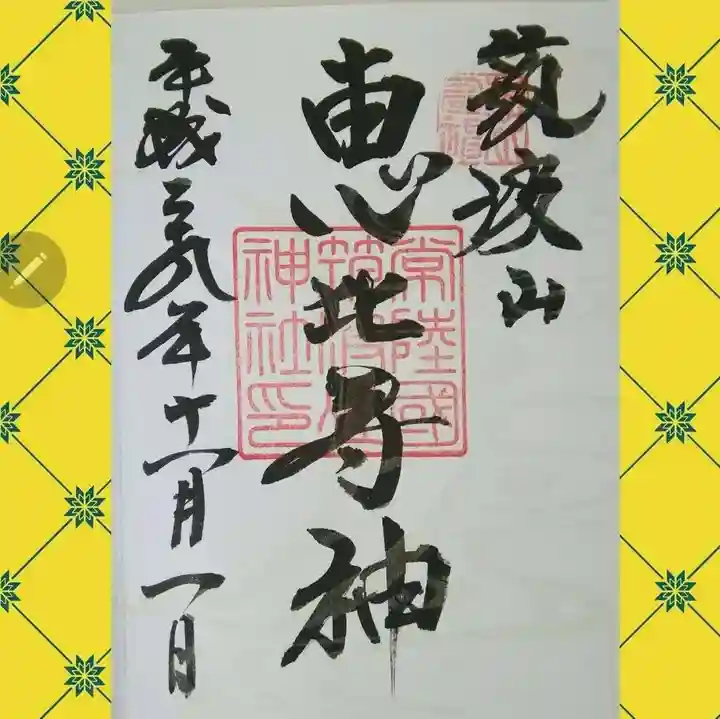 筑波山
恵比寿神
平成二十九年十一月一日
常陸國
筑波山
神社印